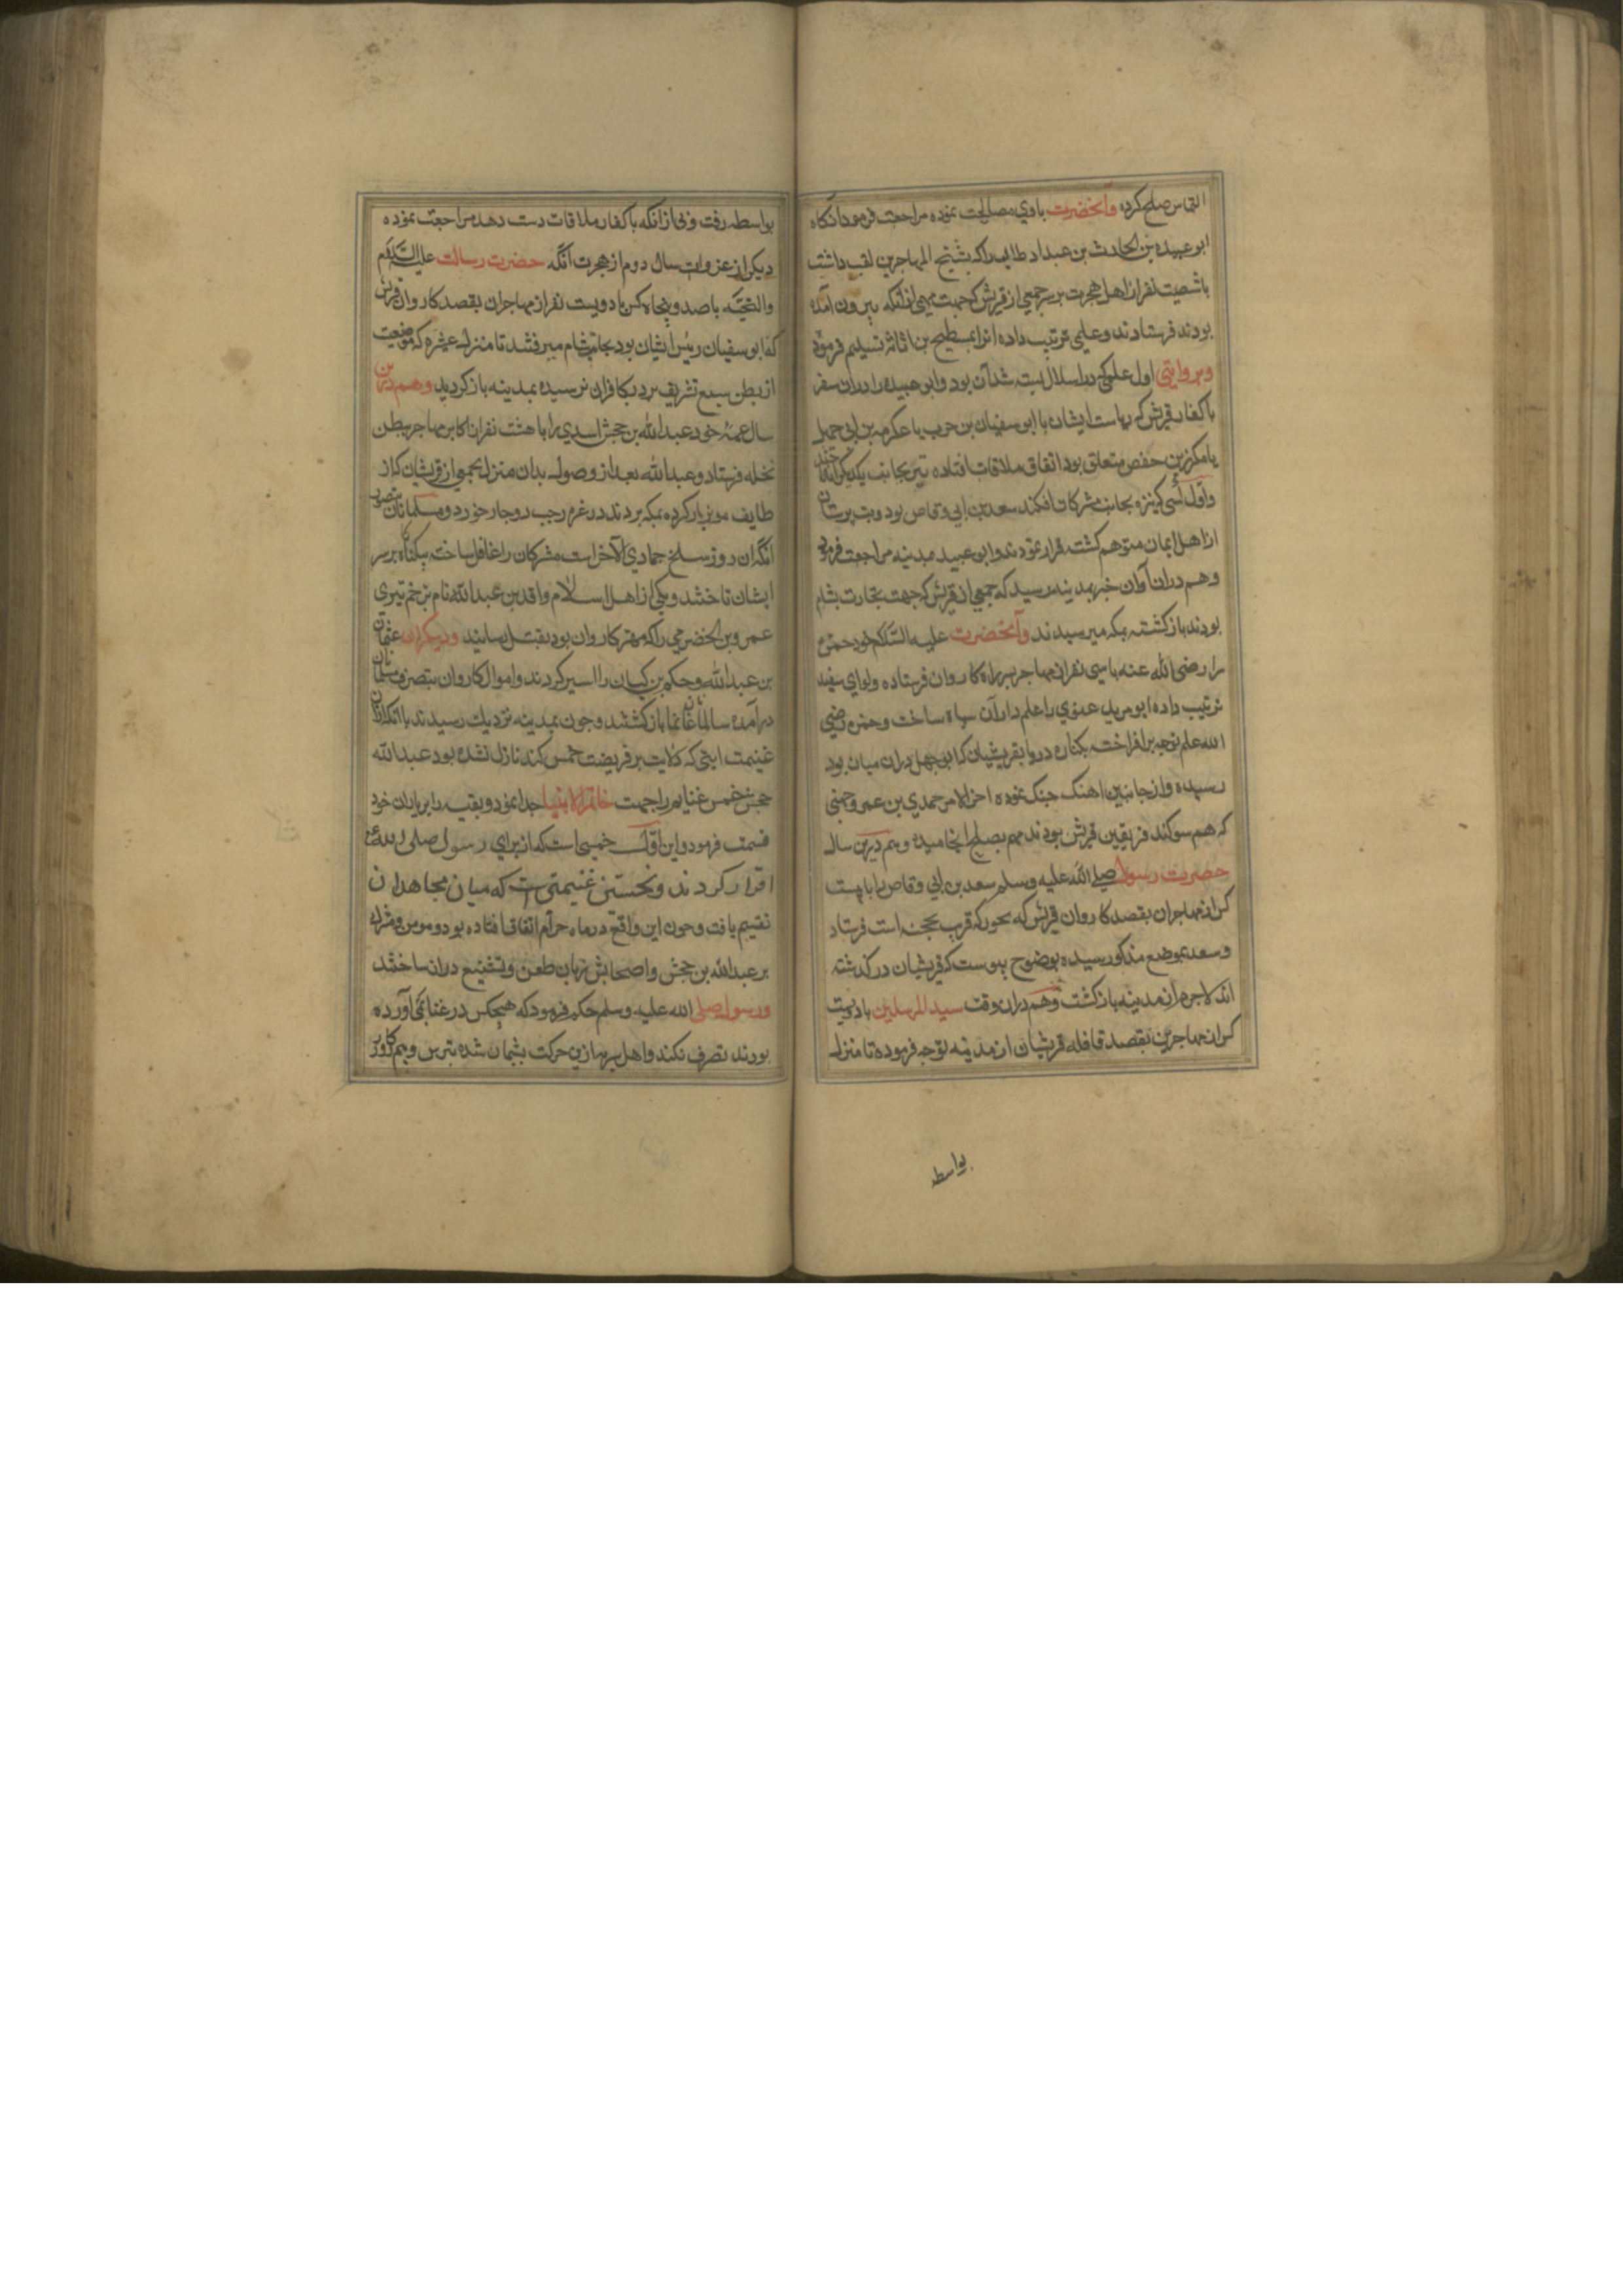 التماس صلح کرد وآنحضرت باوي مصالحت نموده مراجعت فرمود انکاه
ابو عبیده بن الحارث بن عبد المطالب راکه بشیخ المهاجرین لقب داشت
باشصیت نفر از اهل هجرت بر سر جمعی از قریش که جهت مهمی از مکه بیرون آمده
بودند فرستادند وعلمی ترتیب داده انرا بمسطیح بن اثاثه تسلیم فرمود
وبروایتی اول علمی که در اسلال بسته شد آن بود وابو عبیده را دران سفر
باکفار قریش که ریاست ایشان با ابو سفیان بن حرب یا عکرمه بن ابی جهل
یا مکرز بن حفص متعلق بود اتفاق ملاقات افتاده تیری چند بجانب یکدیکر انداختند
واول کسی که تیر بجانب مشرکان افکند سعد بن ابی وقاص بود وبت پرستان
از اهل ایمان متوهم کشته فرار نمودند وابو عبید بمدینه مراجعت فرمود
وهم دران آوان خبر بمدینه رسید که جمعی از قریش که جهت تجارت بشام
بودند باز کشته بمکه میرسیدند وآنحضرت علیه السّلام خود حمزه
را رضی الله عنه باسی نفر از مهاجر بسر راه کاروان فرستاده ولوای سفید
ترتیب داده ابو مرید عنوي را علم دار آن سپاه ساخت وحمزه رضی
الله علم توجه برافراخته بکناره دریا بقریشیان که ابو جهل دران میان بود
رسیده واز جانبین اهنک جنک نموده اخر الامر حمدي بن عمرو جهنی
که هم سوکند فریقین قریش بودند مهم بصلح انجامید وهم درین سال
حضرت رسول صلی الله علیه وسلم سعد بن ابی وقاص را با بیست
کس از مهاجران بقصد کاروان قریش که بحور که قرب بحجفه است فرستاد
وسعد بموضع مذکور رسیده بوضوح پیوست که قریشیان درکذشته
اند لاجرم از مدینه باز کشت وهم دران وقت سید المرسلین با دویت
کس از مهاجرین بقصد قافله قریشیان از مدینه توجه فرموده تا منزل
بواسطه
بواسطه رفت وبی از انکه باکفار ملاقات دست دهد مراجعت نموده
دیکر از عزوات سال دوم از هجرت آنکه حضرت رسالت علیه السّلام
والتحیّه باصد وپنجاه کس یا دویست نفر از مهاجران بقصد کاروان قریش
که ابو سفیان رئیس ایشان بود بجانب شام میرفتند تا منزل عشیره که موضعیت
از بطن سبع تشریف برد بکافران نرسیده بمدینه باز کردید وهم درین
سال عمهٔ خود عبد الله بن جحش اسدي را با هشت نفر از اکابر مهاجر ببطن
نخله فرستاد وعبد الله بعد از وصول بدان منزل بجمعی از قریشیان که از
طایف مویز بار کرده بمکه بردند در غره رجب دوچار خورد ومسلمانان بتصور
انکه ان روز سلخ جمادي الآخر است مشرکان را غافل ساخته بیکناه بر سر
ایشان تاختند ویکی از اهل اسلام واقد بن عبد الله نام بزخم تیری
عمرو بن الخضرمی راکه مهتر کاروان بود بقتل رسانید ودیکران عثمان
بن عبد الله وحکم بن کیسان را اسیر کردند واموال کاروان بتصرف مسلمانان
درآمده سالما غانما باز کشتند وچون بمدینه نزدیك رسیدند با انکه از ان
غنیمت ایتی که دلالیت بر فریضت خمس کند نازل نشده بود عبد الله
جحش خمس غنایم را جهت خاتم الانبیا جدا نمود وبقیه را بر یاران خود
قسمت فرمود واین اوّل خمسی است که از برای رسول صلی الله ع
اقرار کردند ونخستین غنیمتی ست که میان مجاهدان
تقسیم یافت وچون این واقع در ماه حرام اتفاق افتاده بود ومومن ومشرك
بر عبد الله بن جحش واصحابش زبان طعن وتشنیع دران ساختند
ورسول صلی الله علیه وسلم حکم فرمود که هیچکس در غنایمی که آورده
بودند تصرف نکند واهل سر ازین حرکت پشیمان شده